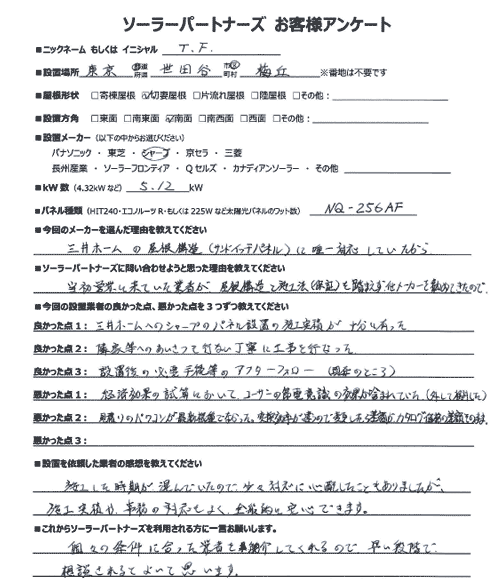 ソーラーパートナーズ お客様アンケート
■ニックネーム もしくは イニシャル T.F.
■設置場所 東京 都道府県 世田谷 市区町村 梅丘 ※番地は不要です
■屋根形状 □寄棟屋根 ☑切妻屋根 □片流れ屋根 □陸屋根 □その他:
■設置方角 □東面 □南東面 ☑南面 □南西面 □西面 □その他:
■設置メーカー (以下の中からお選びください)
パナソニック ・ 東芝 ・ シャープ ・ 京セラ ・ 三菱
長州産業 ・ ソーラーフロンティア ・ Qセルズ ・ カナディアンソーラー ・ その他
■kW数 (4.32kWなど) 5.12 kW
■パネル種類 (HIT240・エコノルーツR・もしくは 225W など太陽光パネルのワット数) NQ-256AF
■今回のメーカーを選んだ理由を教えてください
三井ホームの屋根構造(サンドイッチパネル)に唯一対応していたから
■ソーラーパートナーズに問い合わせようと思った理由を教えてください
当初営業に来ていた業者が 屋根構造と施工法(保証)を踏まえず他メーカーを勧めてきたので
■今回の設置業者の良かった点、悪かった点を3つずつ教えてください
良かった点1: 三井ホームへのシャープのパネル設置の施工実績が十分に有った
良かった点2: 隣家等へのあいさつも行ない丁寧に工事を行なった
良かった点3: 設置後の必要手続等のアフターフォロー (現在のところ)
悪かった点1: 経済効果の試算において、ユーザーの節電意識の効果が含まれていた(外して検討した)
悪かった点2: 見積りのパワコンが最新機種でなかった。
悪かった点3:
■設置を依頼した業者の感想を教えてください
施工した時期が混んでいたので、少々対応に心配したこともありましたが、
施工実績や、事務の対応もよく、全般的に安心できます。
■これからソーラーパートナーズを利用される方に一言お願いします。
個々の条件に合った業者を紹介してくれるので、早い段階で
相談されるとよいと思います。